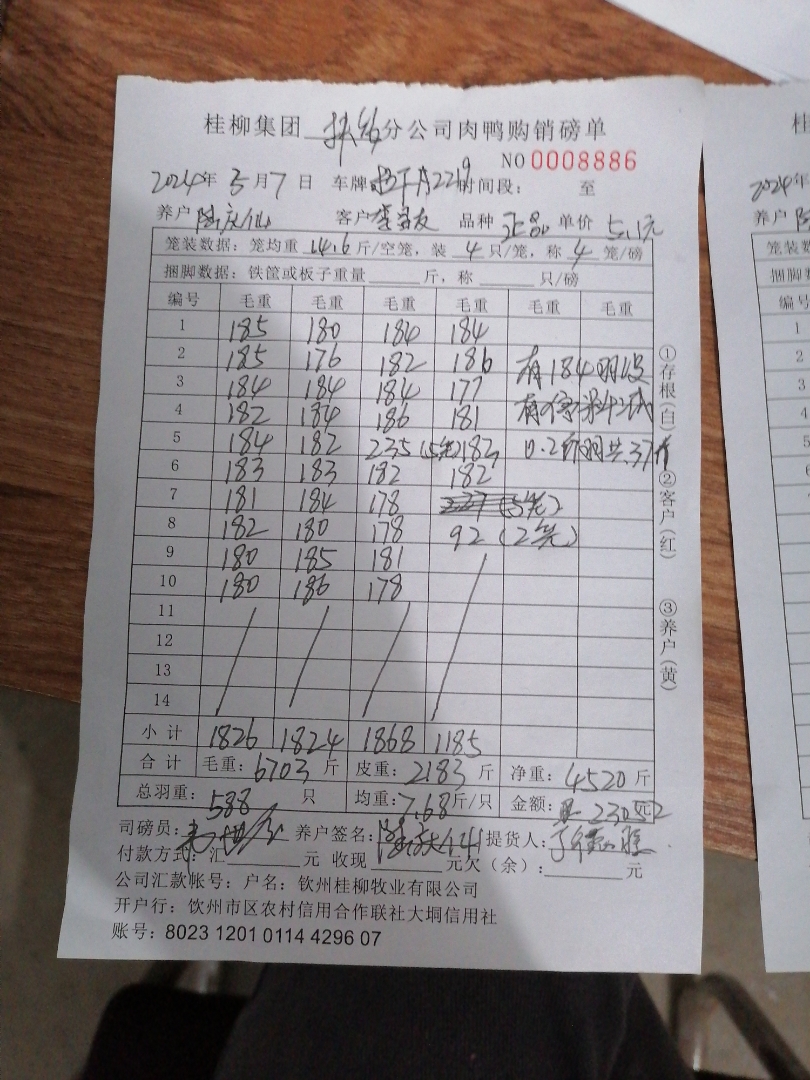 桂柳集团 扶绥 分公司肉鸭购销磅单
NO 0008886
2024年 3月7日 车牌 2219 时间段： 至
养户 陆庆仙 客户 李 友 品种 正品 单价 5.1元
笼装数据：笼均重 14.6 斤/空笼，装 4 只/笼，称 4 笼/磅
捆脚数据：铁筐或板子重量 斤，称 只/磅
编号 毛重 毛重 毛重 毛重 毛重 毛重
1 185 180 184 184
2 185 176 182 186 有184羽没
3 184 184 184 177 有
4 182 184 186 181
5 184 182 235 (5笼) 182 0.2斤/羽共37斤
6 183 183 182 182
7 181 184 178 (5笼)
8 182 180 178 92 (2笼)
9 180 185 181
10 180 186 178
11
12
13
14
小计 1826 1824 1868 1185
合计 毛重：6703 斤 皮重：2183 斤 净重：4520 斤
总羽重：588 只 均重：7.68斤/只 金额： 23052
司磅员： 养户签名：陆庆仙 提货人：
付款方式：汇 元 收现 元欠（余）： 元
公司汇款帐号：户名：钦州桂柳牧业有限公司
开户行：钦州市区农村信用合作联社大垌信用社
账号：8023 1201 0114 4296 07
①存根（白） ②客户（红） ③养户（黄）
桂
2024年
养户
笼装数
捆脚数
编号
1
2
3
4